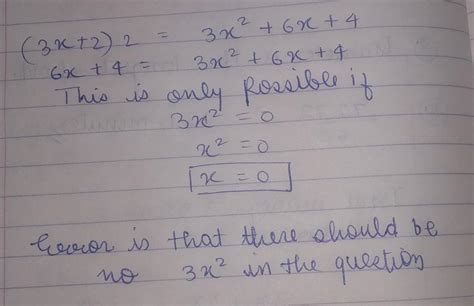 (3x+2) 2 = 3x² + 6x + 4
6x + 4 = 3x² + 6x + 4
This is only possible if
3x² = 0
x² = 0
x = 0
Error is that there should be
no 3x² in the question